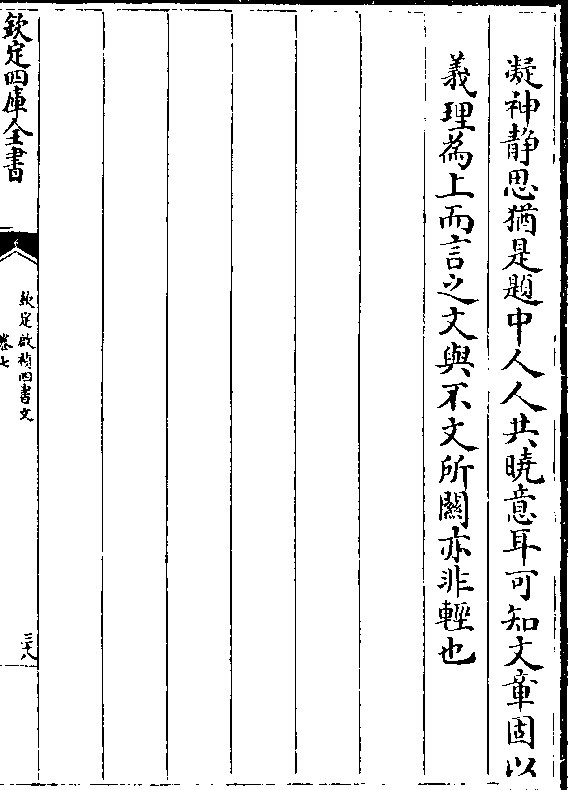 凝神靜思猶是題中人人共曉意耳可知文章固以
義理為上而言之文與不文所關亦非輕也
欽定四庫全書
欽定啟禎四書文
卷七
三八